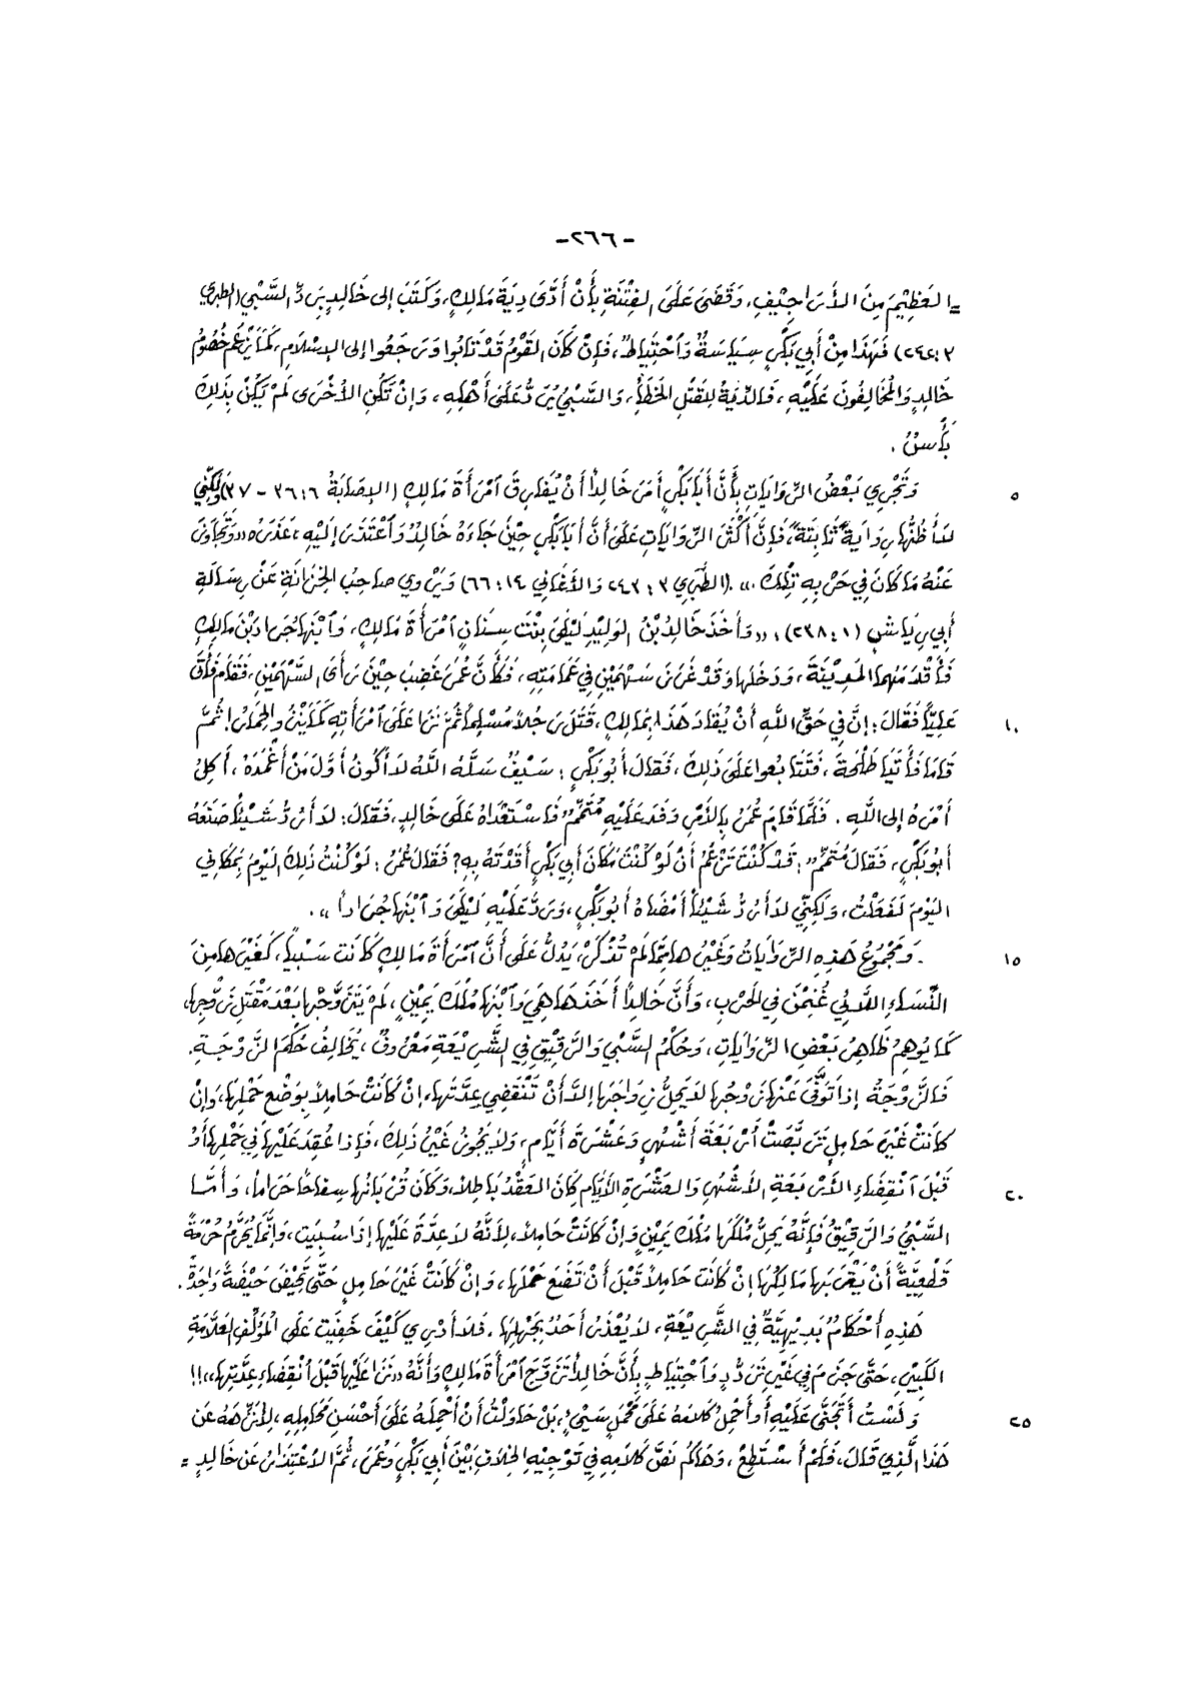 -٢٦٦-
= العَظِيْمَ مِنَ الأَرَاجِيْفِ، وَقَضَى عَلَى الفِتْنَةِ بِأَنْ أَدَّى دِيَةَ مَالِكٍ، وَكَتَبَ إلى خَالِدٍ بِرَدِّ السَّبْيِ (الطبري
٣ : ٢٤٢) فَهَذَا مِنْ أَبِي بَكْرٍ سِيَاسَةٌ وَٱحْتِيَاطٌ، فَإِنْ كَانَ القَوْمُ قَدْ تَابُوا وَرَجَعُوا إلى الإِسْلَامِ، كَمَا يَزْعُم خُصُومُ
خَالِدٍ وَالمُخَالِفُونَ عَلَيْهِ، فَالدِّيَةُ لِلقَتْلِ الخَطَأِ، وَالسَّبْيُ يُرَدُّ عَلَى أَهْلِهِ، وَإِنْ تَكُنِ الأُخْرَى لَمْ يَكُنْ بِذَلِكَ
بَأْسٌ .
٥ وَتَجْرِي بَعْضُ الرِّوَايَاتِ بِأَنَّ أَبَا بَكْرٍ أَمَرَ خَالِدًا أَنْ يُفَارِقَ ٱمْرَأَةَ مَالِكٍ (الإِصَابَةُ ٦ : ٣٦ - ٣٧) وَلَكِنِّي
لَا أَظُنُّهَا رِوَايَةً ثَابِتَةً، فَإِنَّ أَكْثَرَ الرِّوَايَاتِ عَلَى أَنَّ أَبَا بَكْرٍ حِيْنَ جَاءَهُ خَالِدٌ وَٱعْتَذَرَ إِلَيْهِ، عَذَرَهُ «وَتَجَاوَزَ
عَنْهُ مَا كَانَ فِي حَرْبِهِ تِلْكَ ». (الطَّبَرِي ٣ : ٢٤٣ وَالأَغَانِي ١٤ : ٦٦) وَيَرْوِي صَاحِبُ الخِزَانَةِ عَنْ رِسَالَةِ
أَبِي رِيَاشٍ (١ : ٢٣٨) : «وَأَخَذَ خَالِدُ بْنُ الوَلِيْدِ لَيْلَى بِنْتَ سِنَانٍ ٱمْرَأَةَ مَالِكٍ، وَٱبْنَهَا جَرَادَ بْنَ مَالِكٍ
فَأَقْدَمَهُمَا المَدِيْنَةَ، وَدَخَلَهَا وَقَدْ غَرَزَ سَهْمَيْنِ فِي عَمَامَتِهِ، فَكَأَنَّ عُمَرَ غَضِبَ حِيْنَ رَأَى السَّهْمَيْنِ، فَقَامَ فَأَتَى
١٠ عَلِيًّا فَقَالَ : إِنَّ فِي حَقِّ اللهِ أَنْ يُقَادَ هَذَا بِمَالِكٍ، قَتَلَ رَجُلًا مُسْلِمًا ثُمَّ نَزَا عَلَى ٱمْرَأَتِهِ كَمَا يَنْزُو الحِمَارُ! ثُمَّ
قَامَا فَأَتَيَا طَلْحَةَ، فَتَتَابَعُوا عَلَى ذَلِكَ، فَقَالَ أَبُو بَكْرٍ : سَيْفٌ سَلَّهُ اللهُ لَا أَكُونُ أَوَّلَ مَنْ أَغْمَدَهُ، أَكِلُ
أَمْرَهُ إلى اللهِ . فَلَمَّا قَامَ عُمَرُ بِالأَمْرِ وَفَدَ عَلَيْهِ مُتَمِّمٌ فَٱسْتَعْدَاهُ عَلَى خَالِدٍ، فَقَالَ : لَا أَرُدُّ شَيْئًا صَنَعَهُ
أَبُو بَكْرٍ، فَقَالَ مُتَمِّمٌ : قَدْ كُنْتَ تَزْعُمُ أَنْ لَوْ كُنْتَ مَكَانَ أَبِي بَكْرٍ أَقَدْتَهُ بِهِ؟ فَقَالَ عُمَرُ : لَوْ كُنْتُ ذَلِكَ اليَوْمَ بِمَكَانِي
اليَوْمَ لَفَعَلْتُ، وَلَكِنِّي لَا أَرُدُّ شَيْئًا أَمْضَاهُ أَبُو بَكْرٍ، وَرَدَّ عَلَيْهِ لَيْلَى وَٱبْنَهَا جَرَادًا ».
١٥ . وَمَجْمُوعُ هَذِهِ الرِّوَايَاتِ وَغَيْرُهَا مِمَّا لَمْ تُذْكَرْ، يَدُلُّ عَلَى أَنَّ ٱمْرَأَةَ مَالِكٍ كَانَت سَبْيًا، كَغَيْرِهَا مِنَ
النِّسَاءِ اللَّائِي غُنِمْنَ فِي الحَرْبِ، وَأَنَّ خَالِدًا أَخَذَهَا هِيَ وَٱبْنَهَا مُلْكَ يَمِيْنٍ، لَمْ يَتَزَوَّجْهَا بَعْدَ مَقْتَلِ زَوْجِهَا،
كَمَا يُوهِمُ ظَاهِرُ بَعْضِ الرِّوَايَاتِ، وَحُكْمُ السَّبْيِ وَالرَّقِيْقِ فِي الشَّرِيْعَةِ مَعْرُوفٌ، يُخَالِفُ حُكْمَ الزَّوْجَةِ.
فَالزَّوْجَةُ إذَا تَوَفَّى عَنْهَا زَوْجُهَا لَا يَحِلُّ زَوَاجُهَا إِلَّا أَنْ تَنْقَضِي عِدَّتُهَا، إِنْ كَانَتْ حَامِلًا بِوَضْعِ حَمْلِهَا، وَإِنْ
كَانَتْ غَيْرَ حَامِلٍ تَرَبَّصَتْ أَرْبَعَةَ أَشْهُرٍ وَعَشْرَةَ أَيَّامٍ، وَلَا يَجُوزُ غَيْرُ ذَلِكَ، فَإِذَا عُقِدَ عَلَيْهَا فِي حَمْلِهَا أَوْ
٢٠ قَبْلَ ٱنْقِضَاءِ الأَرْبَعَةِ الأَشْهُرِ وَالعَشْرَةِ الأَيَّامِ كَانَ العَقْدُ بَاطِلًا، وَكَانَ قُرْبَانُهَا سِفَاحًا حَرَامًا، وَأَمَّا
السَّبْيُ وَالرَّقِيْقُ فَإِنَّهُ يَحِلُّ مُلْكُهَا مُلْكَ يَمِيْنٍ وَإِنْ كَانَتْ حَامِلًا، لِأَنَّهُ لَا عِدَّةَ عَلَيْهَا إذَا سُبِيَت، وَإِنَّمَا يَحْرُمُ حُرْمَةً
قَطْعِيَّةً أَنْ يَقْرَبَهَا مَالِكُهَا إِنْ كَانَت حَامِلًا قَبْلَ أَنْ تَضَعَ حَمْلَهَا، وَإِنْ كَانَتْ غَيْرَ حَامِلٍ حَتَّى تَحِيْضَ حَيْضَةً وَاحِدَةً.
هَذِهِ أَحْكَامٌ بَدِيْهِيَّةٌ فِي الشَّرِيْعَةِ، لَا يُعْذَرُ أَحَدٌ بِجَهْلِهَا، فَلَا أَدْرِي كَيْفَ خَفِيَت عَلَى المُؤَلِّفِ العَلَّامَةِ
الكَبِيْرِ، حَتَّى جَزَمَ فِي غَيْرِ تَرَدُّدٍ وَٱحْتِيَاطٍ بِأَنَّ خَالِدًا تَزَوَّجَ ٱمْرَأَةَ مَالِكٍ وَأَنَّهُ «نَزَا عَلَيْهَا قَبْلَ ٱنْقِضَاءِ عِدَّتِهَا»!!
٢٥ وَلَسْتُ أَتَجَنَّى عَلَيْهِ أَو أَحْمِلُ كَلَامَهُ عَلَى مَحْمَلٍ سَيِّئٍ، بَلْ حَاوَلْتُ أَنْ أَحْمِلَهُ عَلَى أَحْسَنِ مَحَامِلِهِ، لِأُنَزِّهَهُ عَن
هَذَا الَّذِي قَالَ، فَلَمْ أَسْتَطِعْ، وَهَاكُم نَصَّ كَلَامِهِ فِي تَوْجِيْهِ الخِلَافِ بَيْنَ أَبِي بَكْرٍ وَعُمَرَ، ثُمَّ الاعْتِذَارُ عَن خَالِدٍ =